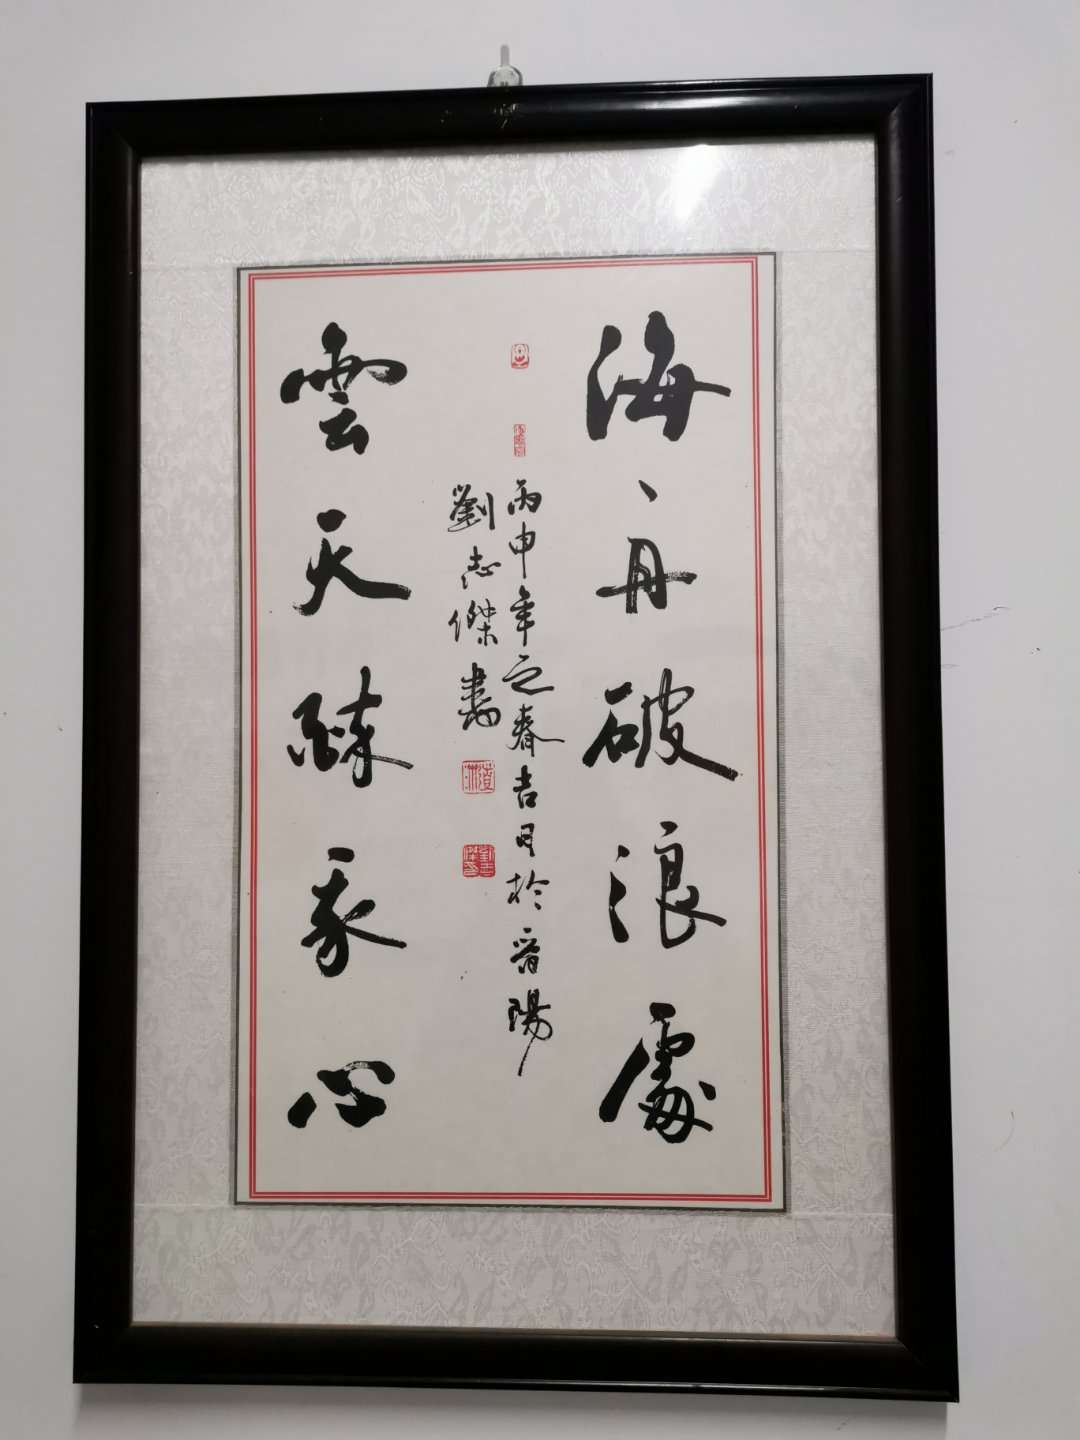 海舟破浪處
雲天練我心
丙申年之春吉月於晉陽
劉志傑書